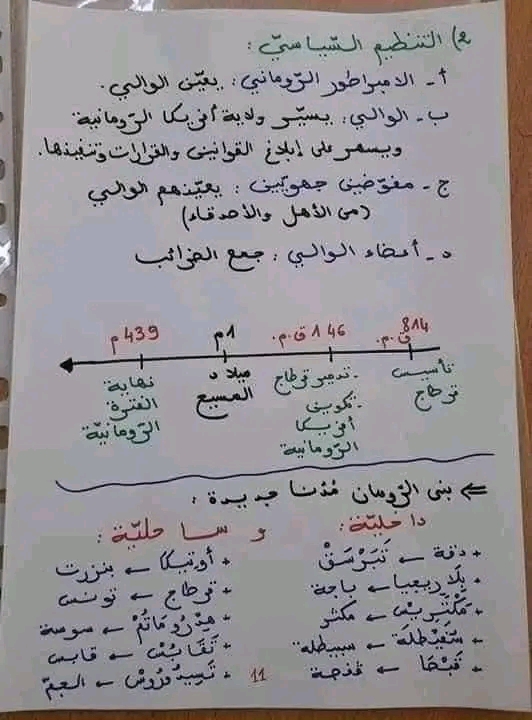 2) التنظيم السّياسيّ :
أ - الامبراطور الرّوماني : يعيّن الوالي .
ب - الوالي : يسيّر ولاية أفريكا الرّومانية
ويسهر على إبلاغ القوانين والقرارات وتنفيذها.
ج - مفوّضين جهويّين : يعيّنهم الوالي
(من الأهل والأصدقاء)
د - أعضاء الوالي : جمع الضرائب
814 ق.م.
146 ق.م.
1م
439 م
تأسيس قرطاج
- تدمير قرطاج
- تكوين أفريكا الرّومانية
ميلاد المسيح
نهاية الفترة الرّومانيّة
⇐ بنى الرّومان مُدُنا جديدة :
داخليّة : و ساحليّة :
+ دقة ← تَبَرْسُقْ
+ بلاريجيا ← باجة
+ مَكْتَرِيسْ ← مكثر
+ سُفَيْطلَة ← سبيطلة
+ قَبْصَا ← قفصة
+ أوتيكا ← بنزرت
+ قرطاج ← تونس
+ هدْرُومَاتُمْ ← سوسة
+ تَكَابَسْ ← قابس
+ تَيسِدْرُوسْ ← الجمّ
11